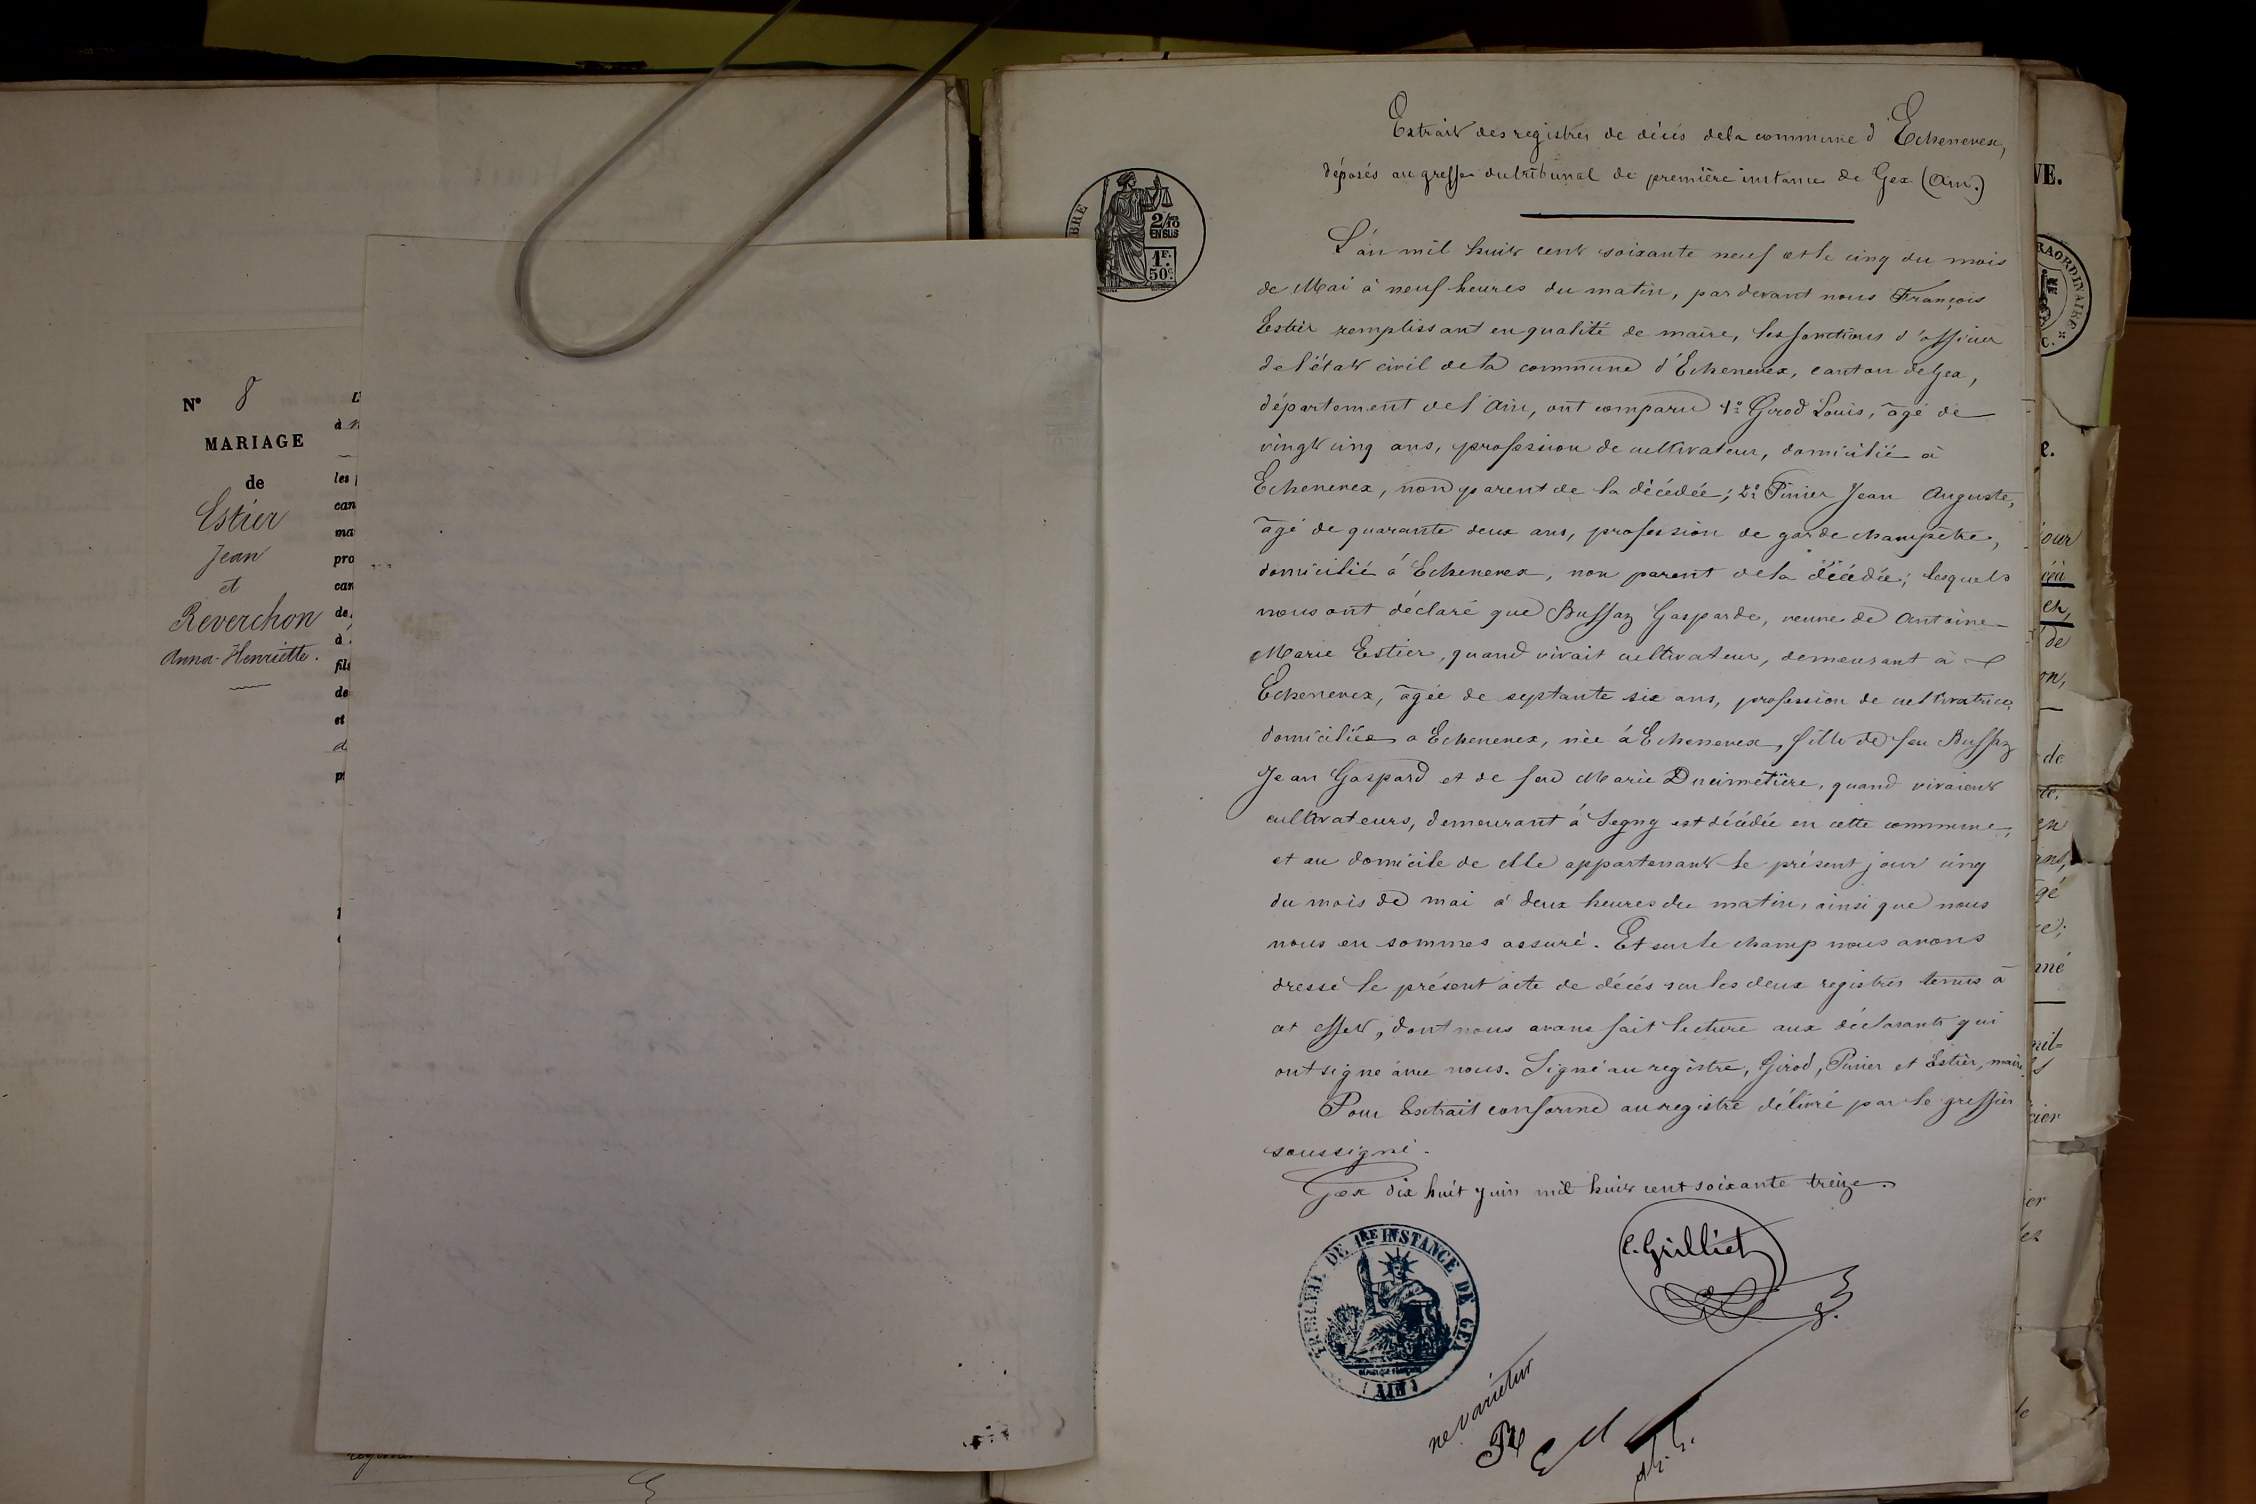 N° 8
MARIAGE
de
Estier
Jean
et
Reverchon
Anna-Henriette.
les
can
ma
pro
can
de
à
fils
de
et
Extrait des registres de décès de la commune d'Echenevex,
déposés au greffe du tribunal de première instance de Gex (Ain.)
BRE
2/10
EN SUS
1F.
50c
L'an mil huit cent soixante neuf et le cinq du mois
de Mai à neuf heures du matin, par devant nous François
Estier remplissant en qualité de maire, les fonctions d'officier
de l'état civil de la commune d'Echenevex, canton de Gex,
département de l'Ain, ont comparu 1° Girod Louis, âgé de
vingt cinq ans, profession de cultivateur, domicilié à
Echenevex, non parent de la décédée; 2° Pinier Jean Auguste,
âgé de quarante deux ans, profession de garde champêtre,
domicilié à Echenevex, non parent de la décédée; lesquels
nous ont déclaré que Buffaz Gasparde, veuve de Antoine-
Marie Estier, quand vivait cultivateur, demeurant à
Echenevex, âgée de septante six ans, profession de cultivatrice,
domiciliée a Echenevex, née à Echenevex, fille de feu Buffaz
Jean Gaspard et de feu Marie Ducimetière, quand vivaient
cultivateurs, demeurant à Segny est décédée en cette commune,
et au domicile de elle appartenant le présent jour cinq
du mois de mai à deux heures du matin, ainsi que nous
nous en sommes assuré. Et sur le champ nous avons
dressé le présent acte de décés sur les deux registres tenus à
cet effet, dont nous avons fait lecture aux déclarants qui
ont signé avec nous. Signé au registre, Girod, Pinier et Estier, maire.
Pour Extrait conforme au registre délivré par le greffier
soussigné.
Gex dix huit juin mil huit cent soixante treize.
C. Grilliet
TRIBUNAL DE 1RE INSTANCE DE GEX
(AIN)
ne varietur
VE.
RAORDINAIRE
C.
our
de
on,
de
en
ans,
gé
né
mil=
cier